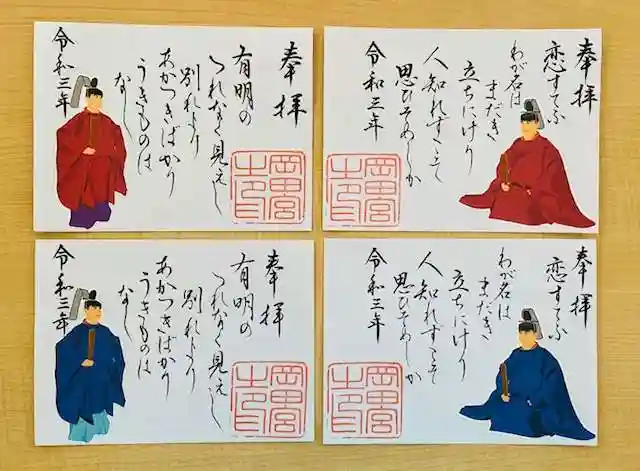 奉拝
有明の
つれなく見えし
別れより
あかつきばかり
うきものは
なし
令和三年
岡田宮
之印
奉拝
恋すてふ
わが名は
まだき
立ちにけり
人知れずこそ
思ひそめしか
令和三年
岡田宮
之印
奉拝
有明の
つれなく見えし
別れより
あかつきばかり
うきものは
なし
令和三年
岡田宮
之印
奉拝
恋すてふ
わが名は
まだき
立ちにけり
人知れずこそ
思ひそめしか
令和三年
岡田宮
之印